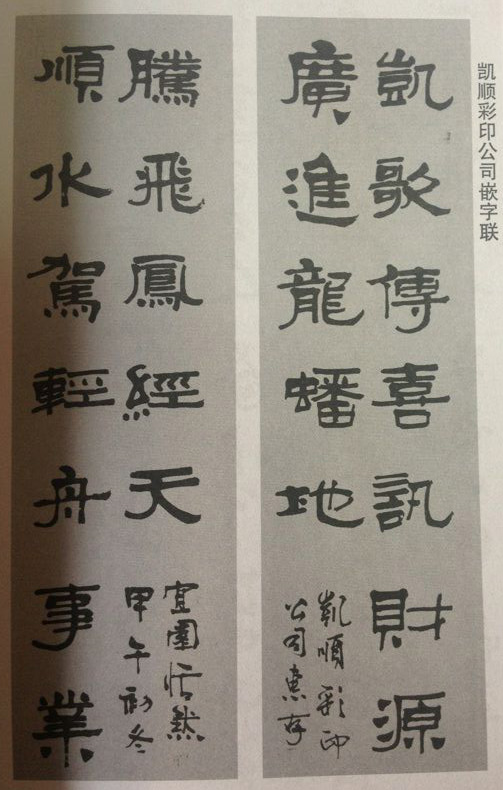 凯顺彩印公司嵌字联
凱歌傳喜訊財源
廣進龍蟠地
凱順彩印
公司惠存
順水駕輕舟事業
騰飛鳳經天
宜園恬然
甲午初冬